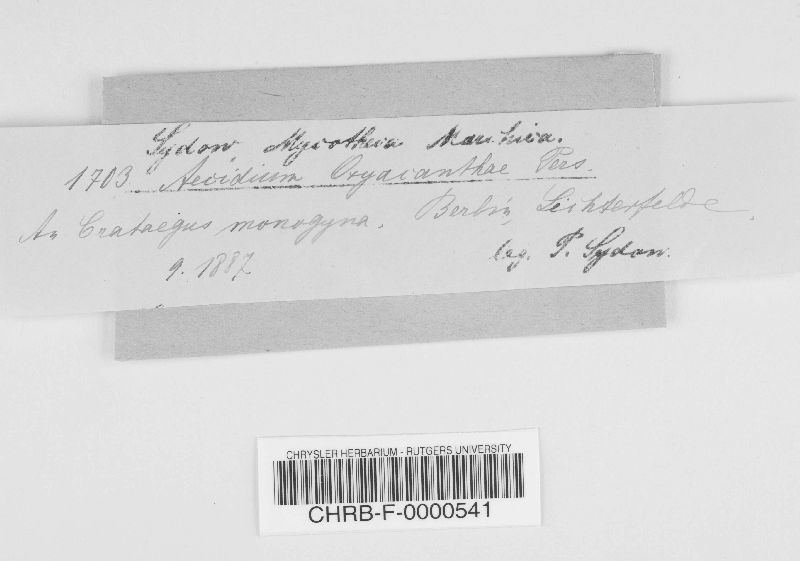 Sydow Mycotheca Marchica.
1703. Aecidium Oxyacanthae Pers.
An Crataegus monogyna. Berlin, Lichterfelde.
9. 1887 leg. P. Sydow.
CHRYSLER HERBARIUM - RUTGERS UNIVERSITY
CHRB-F-0000541